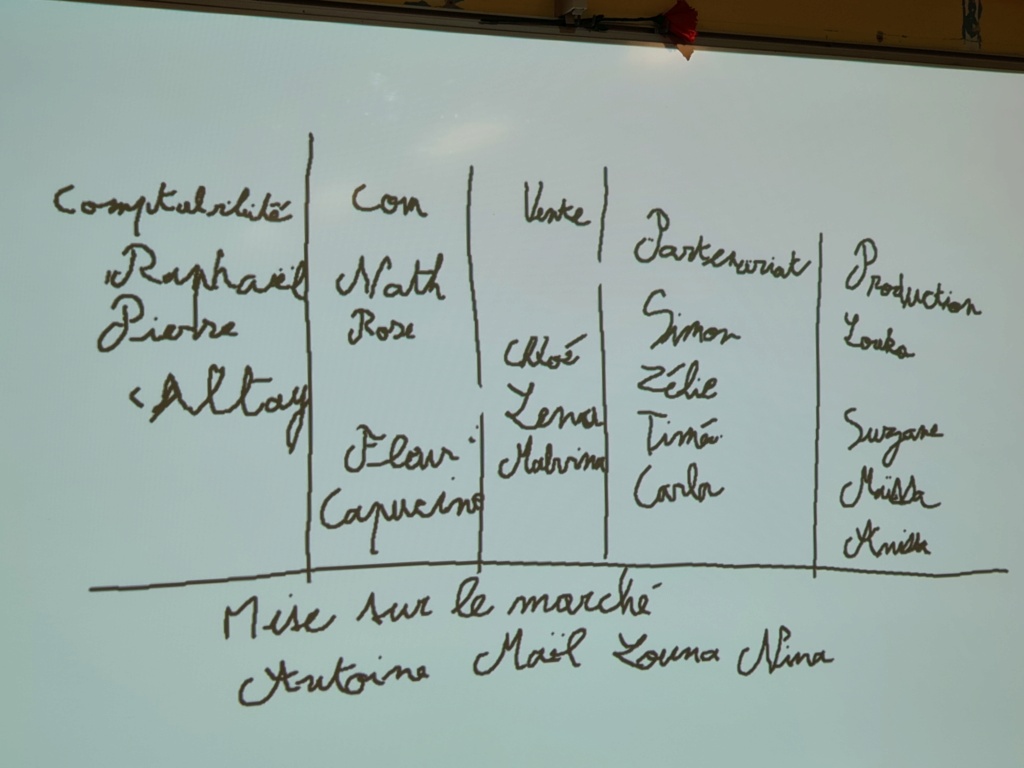 Comptabilité
Raphaël
Pierre
Altay
Com
Nath
Rose
Fleur
Capucine
Vente
Chloé
Lena
Malvina
Partenariat
Simon
Zélie
Timé
Carla
Production
Louka
Suzane
Maïssa
Anissa
Mise sur le marché
Antoine Maël Louna Nina